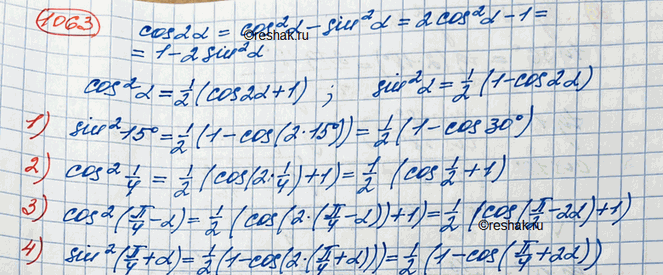 1063 cos2α = cos²α - sin²α = 2cos²α - 1 =
= 1 - 2sin²α
cos²α = 1/2 (cos2α + 1) ; sin²α = 1/2 (1 - cos2α)
1) sin²15° = 1/2 (1 - cos(2·15°)) = 1/2 (1 - cos30°)
2) cos² 1/4 = 1/2 (cos(2·1/4) + 1) = 1/2 (cos 1/2 + 1)
3) cos²(π/4 - α) = 1/2 (cos(2·(π/4 - α)) + 1) = 1/2 (cos(π/2 - 2α) + 1)
4) sin²(π/4 + α) = 1/2 (1 - cos(2·(π/4 + α))) = 1/2 (1 - cos(π/4 + 2α))
©reshak.ru
©reshak.ru